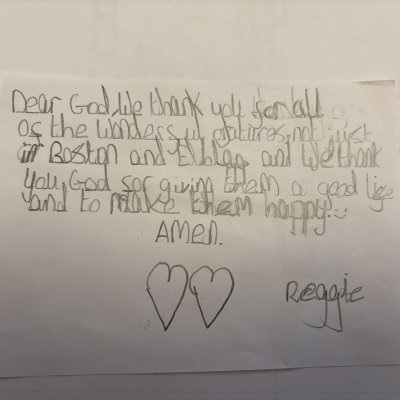 Dear God, We thank you for all
of the wonderful of times, not just
in Boston and Elblag and We thank
you, God for giving them a good life
and to make them happy!
AMEN.
Reggie